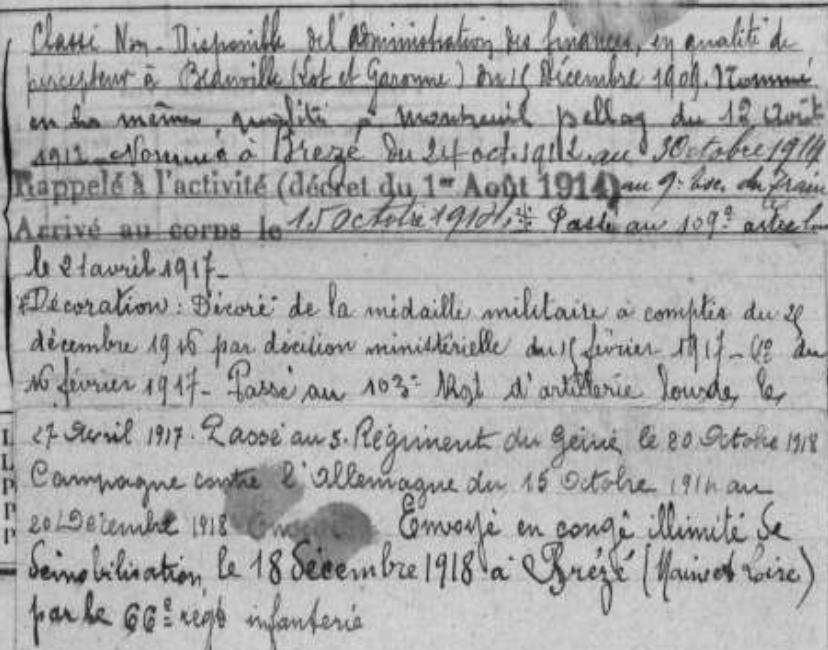 Classé Non-Disponible de l'Administration des finances, en qualité de
percepteur à (Lot et Garonne) du 15 Décembre 1909. Nommé
en la même qualité à Montreuil Bellay du 12 Août
1912. Nommé à Brezé du 24 oct. 1912 au 3 Octobre 1914
Rappelé à l'activité (décret du 1er Août 1914) au 9e du train
Arrivé au corps le 15 Octobre 1914. Passé au 109e
le 21 avril 1917-
Décoration: Décoré de la médaille militaire à compter du
décembre 1916 par décision ministérielle du février 1917- du
16 février 1917- Passé au 103e Régt d'artillerie lourde le
27 Avril 1917. Passé au 5. Régiment du Génie le 20 Octobre 1918
Campagne contre l'Allemagne du 15 Octobre 1914 au
20 Décembre 1918 Envoyé en congé illimité de
démobilisation le 18 décembre 1918 à Brézé (Maine et Loire)
par le 66e régt infanterie
L
L
P
P
P